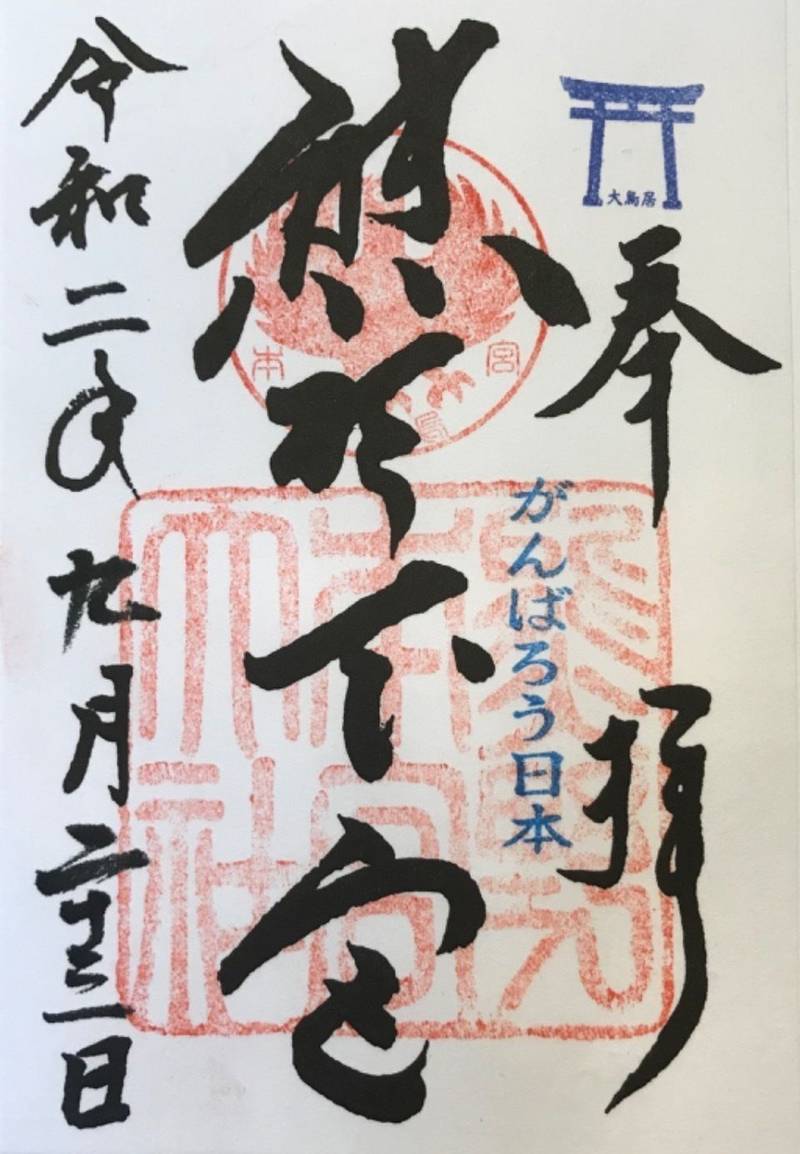 大鳥居
奉拝
がんばろう日本
熊野本宮
令和二年九月二十三日
熊野
本宮
大社
本宮